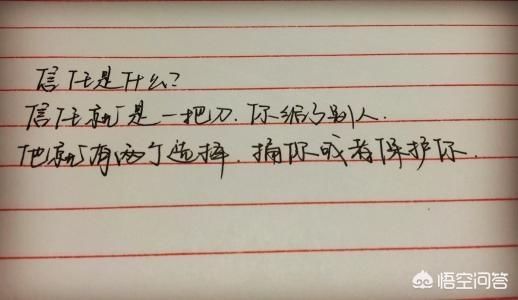 信任是什么?
信任就是一把刀.你给了别人.
他就有两个选择.捅你或者保护你.
悟空问答